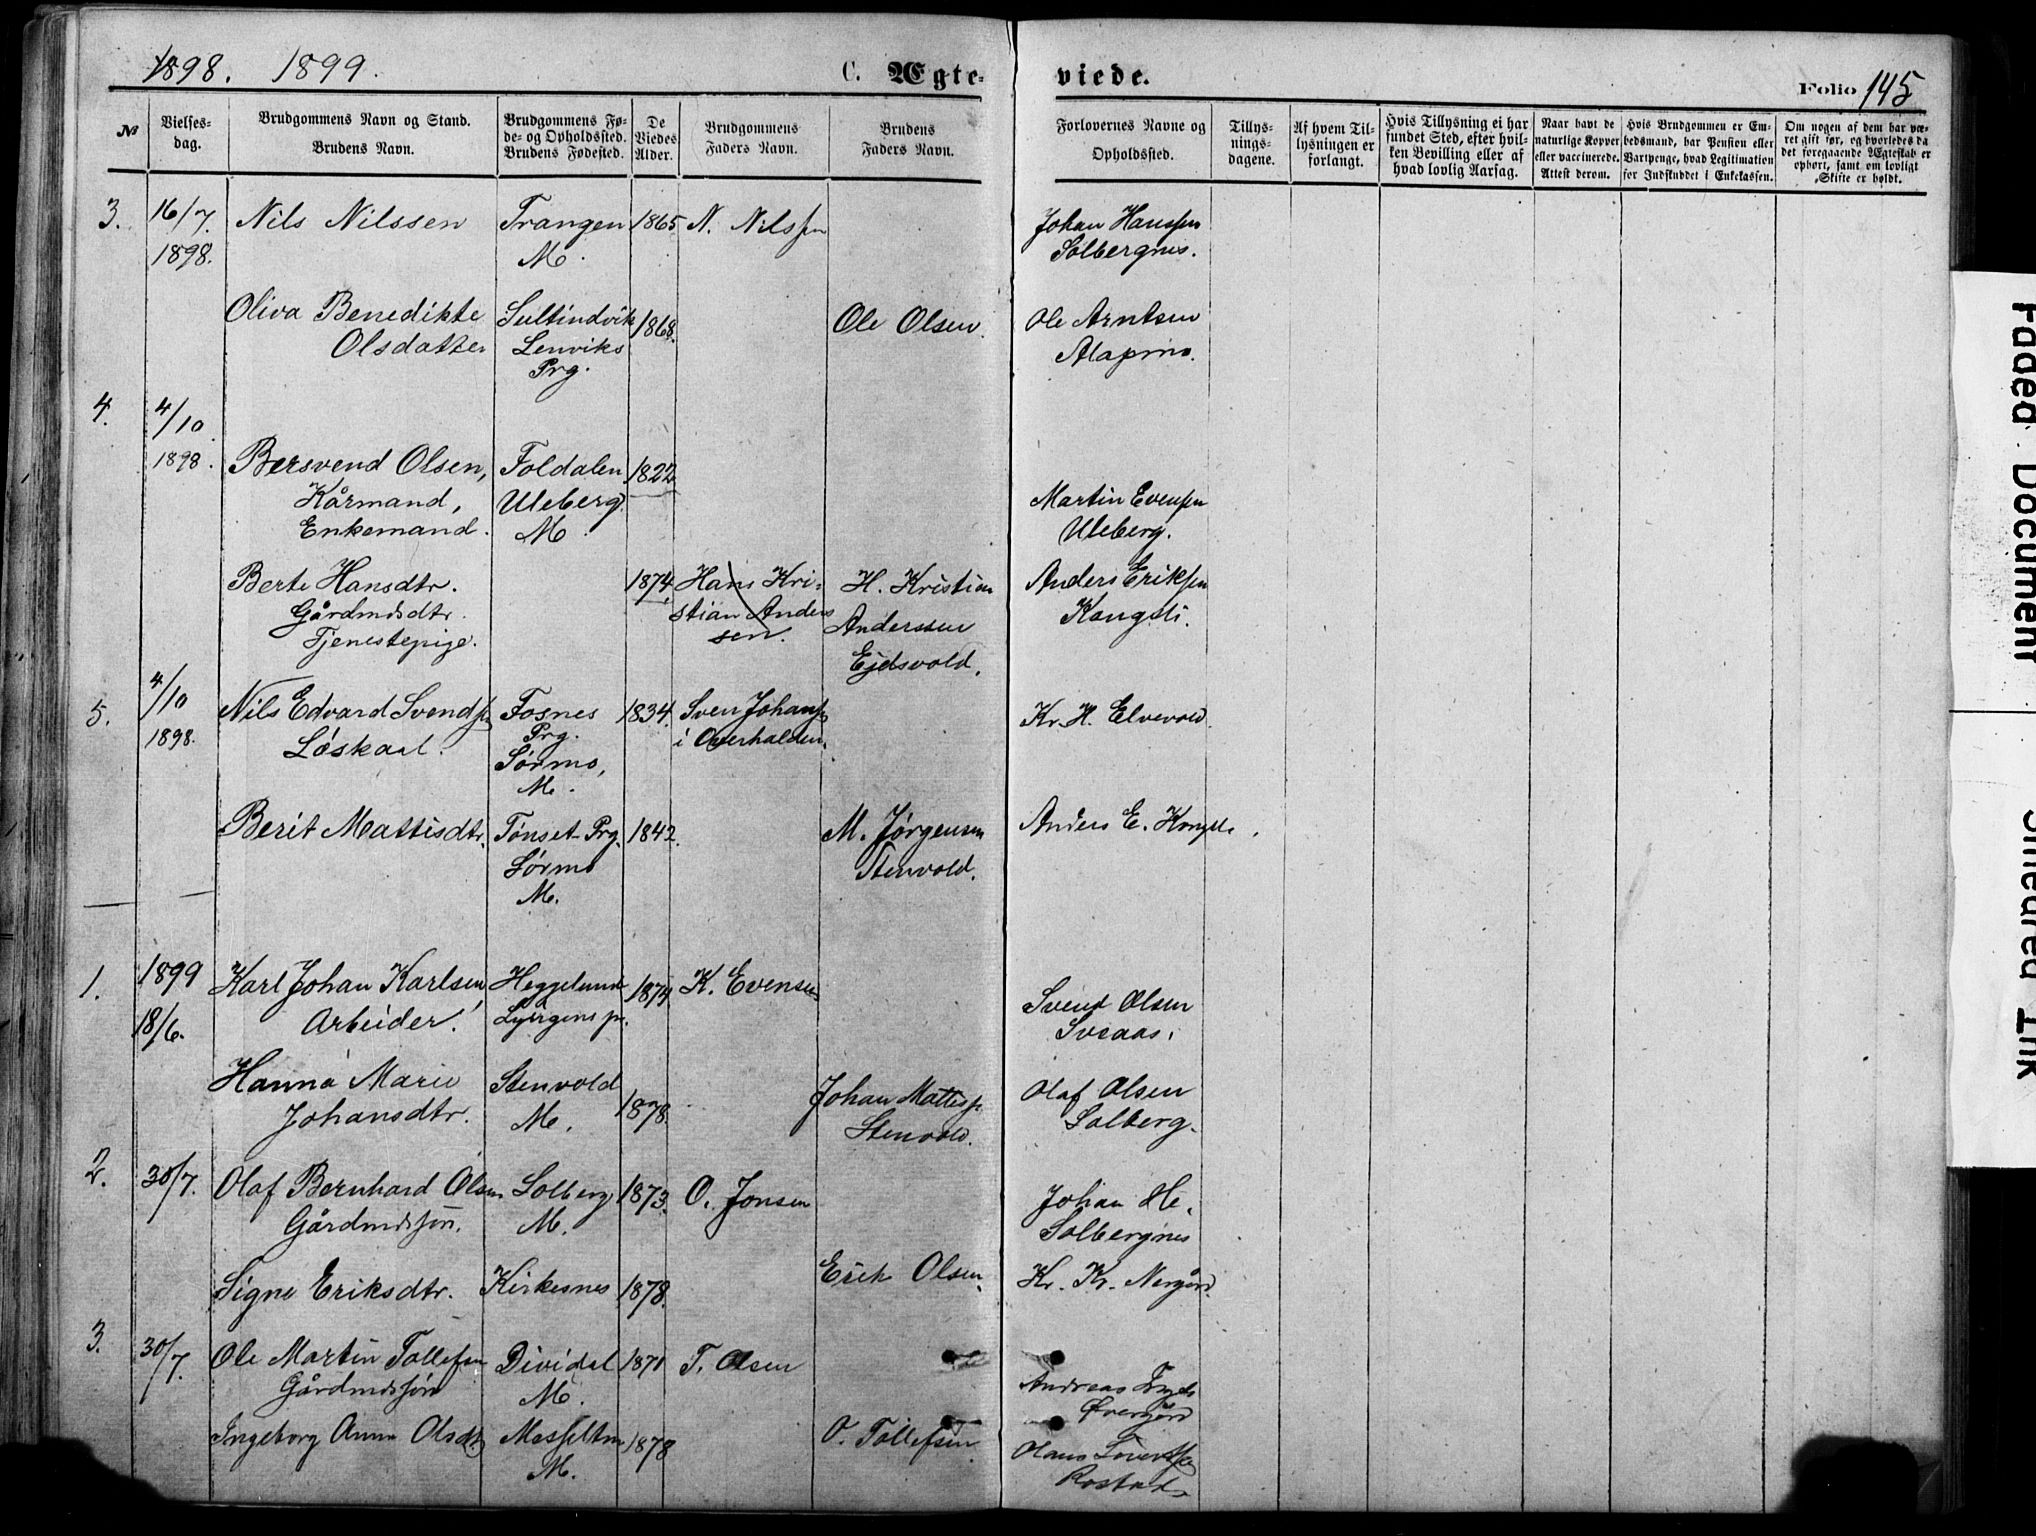 1898. 1899.
C. Ægte-
viede.
Folio 145
№
Vielses-
dag.
Brudgommens Navn og Stand.
Brudens Navn.
Brudgommens Fø-
de- og Opholdssted.
Brudens Fødested.
De
Viedes
Alder.
Brudgommens
Faders Navn.
Brudens
Faders Navn.
Forlovernes Navne og
Opholdssted.
Tillys-
nings-
dagene.
Af hvem Til-
lysningen er
forlangt.
Hvis Tillysning ei har
fundet Sted, efter hvil-
ken Bevilling eller af
hvad lovlig Aarsag.
Naar havt de
naturlige Kopper
eller vaccinerede.
Attest derom.
Hvis Brudgommen er Em-
bedsmand, har Pension eller
Vartpenge, hvad Legitimation
for Indskuddet i Enkekassen.
Om nogen af dem har væ-
ret gift før, og hvorledes da
det foregaaende Ægteskab er
ophørt, samt om lovligt
Skifte er holdt.
3.
16/7
1898.
Nils Nilssen
Trangen
M.
1865
N. Nilssen
Johan Hanssen
Solbergnes.
Oliva Benedikte
Olsdatter
Sultindvik
Lenviks
Prg.
1868.
Ole Olsen
Ole Arntsen
4.
4/10
1898.
Bersvend Olsen,
Kårmand,
Enkemand.
Foldalen
Uleberg
M.
1822
Martin Evensen
Uleberg.
Berte Hansdtr.
Gårdmdsdtr.
Tjenestepige.
1874.
Hans Kri-
stian Anders
sen.
H. Kristian
Anderssen
Ejdsvold.
Anders Eriksen
Kongsli.
5.
4/10
1898.
Nils Edvard Svendsen
Løskarl.
Fosnes
Prg.
Sørmo,
M.
1834.
Sven Johansen
i Overhalden.
Kr. H. Elvevold.
Berit Mattisdtr.
Tønset Prg.
Sørmo
M.
1842.
M. Jørgensen
Stenvold.
Anders E. Kongsli.
1.
1899
18/6.
Karl Johan Karlsen,
Arbeider.
Heggelund
Lyngens p.
1874
K. Evensen
Svend Olsen
Sveaas.
Hanna Marie
Johansdtr.
Stenvold
M.
1878.
Johan Mattess.
Stenvold.
Olaf Olsen
Solberg.
2.
30/7.
Olaf Bernhard Olsen
Gårdmdssøn.
Solberg
M.
1873.
O. Jonsen
Johan He.
Solbergnes
Signe Eriksdtr.
Kirkesnes
1878.
Erik Olsen.
Kr. Kr. Nergård.
3.
30/7.
Ole Martin Tollefsen
Gårdmdssøn
Dividal
M.
1871
T. Olsen
Andreas
Øvergård
Ingeborg Anna Olsdtr
M.
1878
O. Tollefsen
Olaus
Rostad.
Faded Document
Smeared Ink